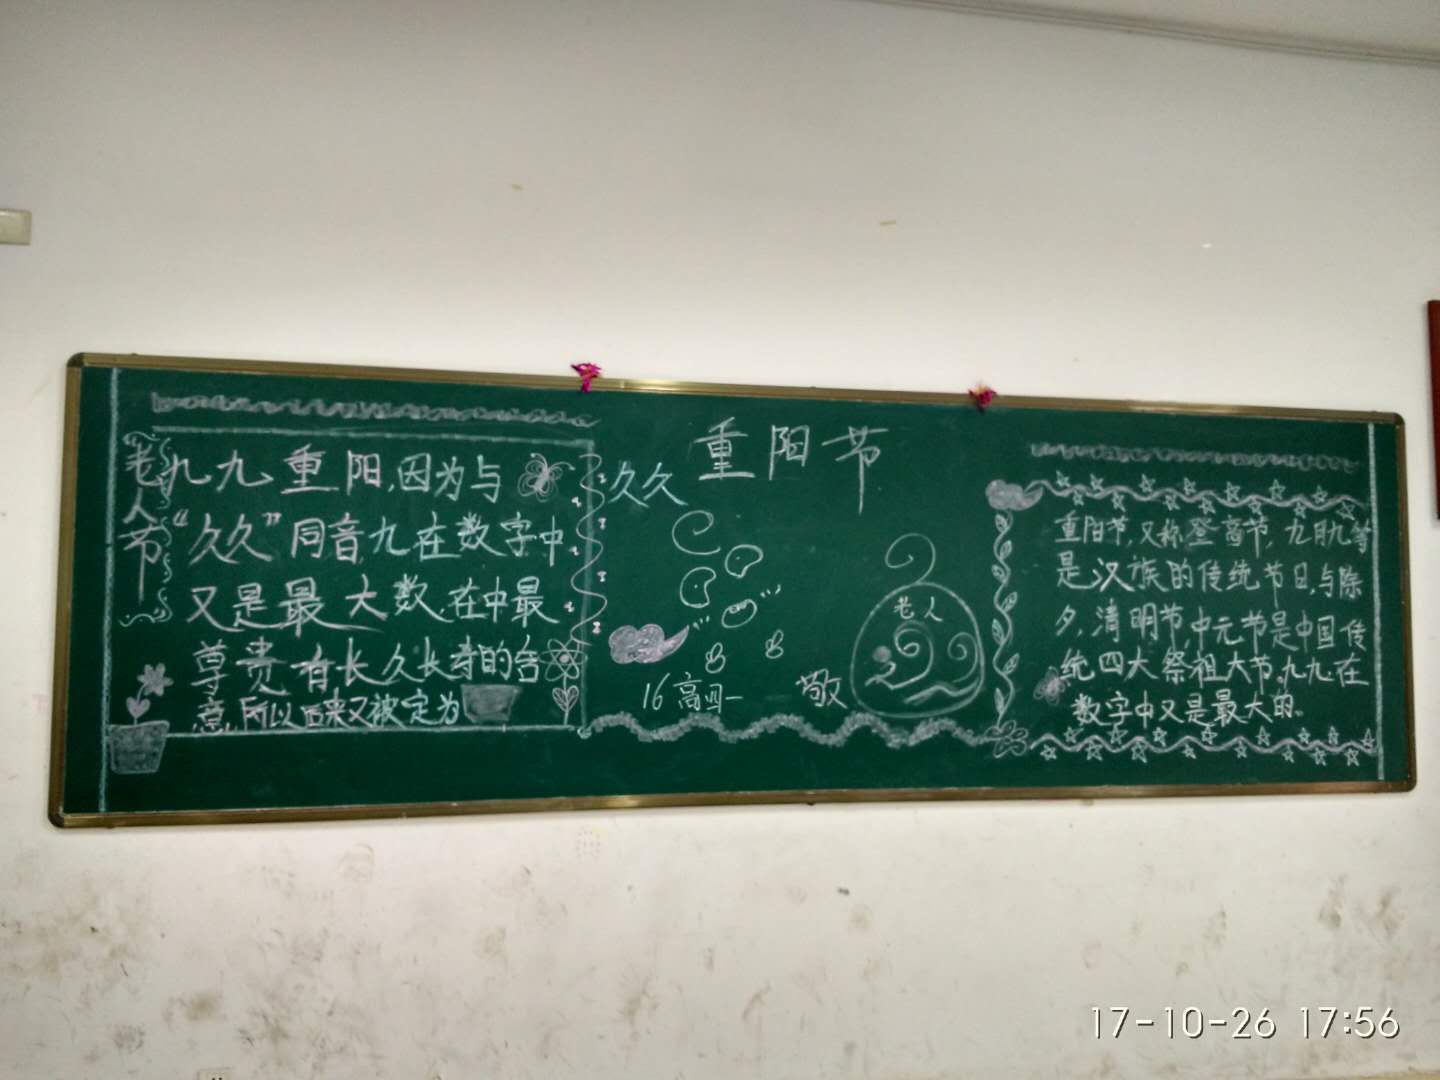 重阳节
老人节
九九重阳,因为与
“久久”同音,九在数字中
又是最大数,在中最
尊贵有长久长寿的含
意,所以后来又被定为
久久
16高四一
敬
老人
重阳节,又称登高节,九月九等
是汉族的传统节日,与除
夕,清明节,中元节是中国传
统四大祭祖大节。九九在
数字中又是最大的。
17-10-26 17:56